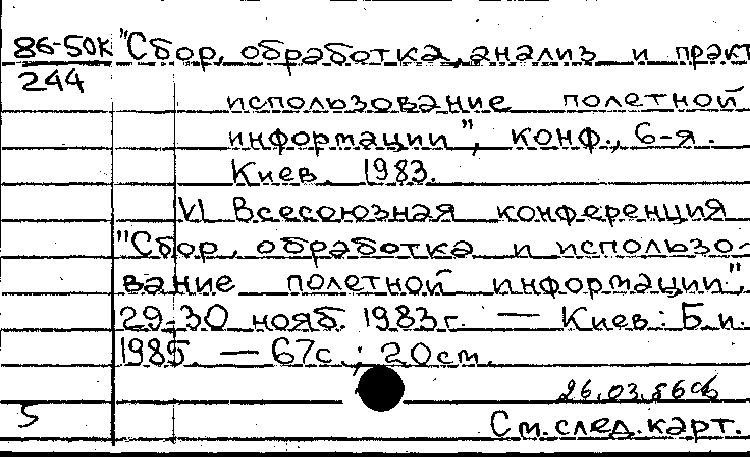 86-50К "Сбор, обработка, анализ и практ
244
использование полетной
информации", конф., 6-я.
Киев. 1983.
VI Всесоюзная конференция
"Сбор, обработка и использо-
вание полетной информации",
29-30 нояб. 1983г. — Киев: Б.и.
1985. — 67с.; 20см.
26.03.86
5
См.след.карт.